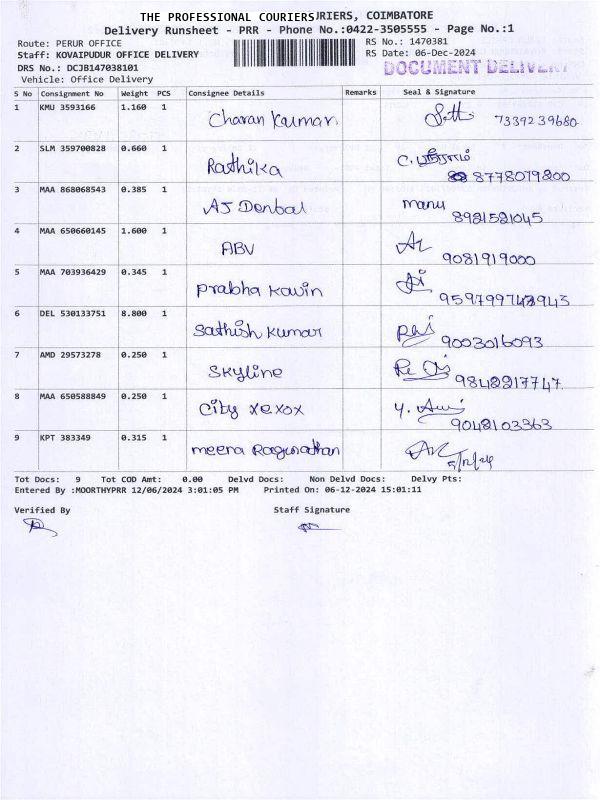 THE PROFESSIONAL COURIERS RIERS, COIMBATORE
Delivery Runsheet - PRR - Phone No.:0422-3505555 - Page No.:1
Route: PERUR OFFICE RS No.: 1470381
Staff: KOVAIPUDUR OFFICE DELIVERY RS Date: 06-Dec-2024
DRS No.: DCJB147038101 DOCUMENT
Vehicle: Office Delivery
S No Consignment No Weight PCS Consignee Details Remarks Seal & Signature
1 KMU 3593166 1.160 1 Charan Kumar 7339239680
2 SLM 359700828 0.660 1 Rathika 8778079800
3 MAA 868068543 0.385 1 AJ Denbal manu 8921521045
4 MAA 650660145 1.600 1 ABV 9081919000
5 MAA 703936429 0.345 1 Prabha Kavin
6 DEL 530133751 8.800 1 Sathish Kumar 9003016093
7 AMD 29573278 0.250 1 Skyline 9842217747
8 MAA 650588849 0.250 1 City xexox 9042103363
9 KPT 383349 0.315 1 meera Ragunathan 5/12/24
Tot Docs: 9 Tot COD Amt: 0.00 Delvd Docs: Non Delvd Docs: Delvy Pts:
Entered By :MOORTHYPRR 12/06/2024 3:01:05 PM Printed On: 06-12-2024 15:01:11
Verified By Staff Signature